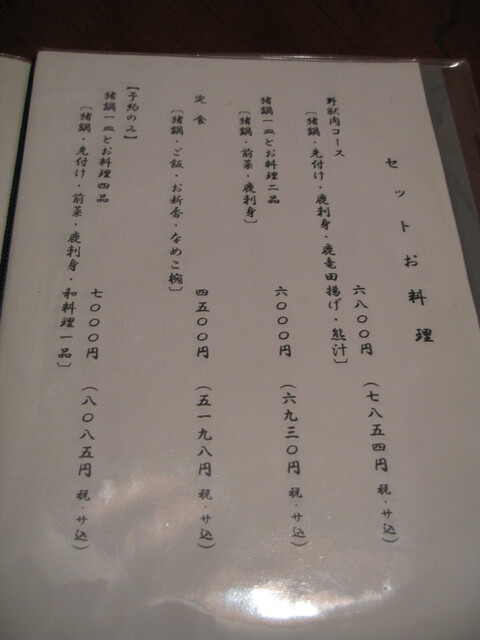 セットお料理
野獣肉コース 六八００円 (七八五四円 税・サ込)
〔猪鍋・先付け・鹿刺身・鹿竜田揚げ・熊汁〕
猪鍋一皿とお料理二品 六０００円 (六九三０円 税・サ込)
〔猪鍋・前菜・鹿刺身〕
定食 四五００円 (五一九八円 税・サ込)
〔猪鍋・ご飯・お新香・なめこ椀〕
【予約のみ】
猪鍋一皿とお料理四品 七０００円 (八０八五円 税・サ込)
〔猪鍋・先付け・前菜・鹿刺身・和料理一品〕